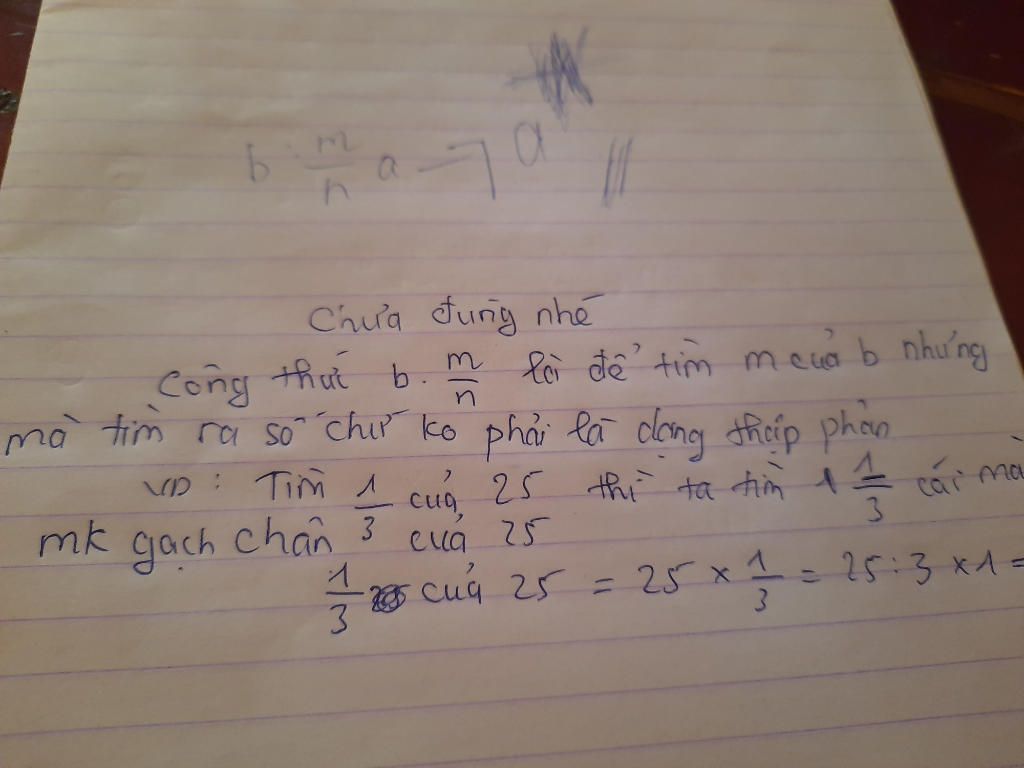 b . m/n a — a
Chưa đúng nhé
Công thức b. m/n là để tìm m của b nhưng
mà tìm ra số chứ ko phải là dạng thập phân
VD : Tìm 1/3 của 25 thì ta tìm 1 1/3 cái mà
mk gạch chân 1/3 của 25
1/3 của 25 = 25 × 1/3 = 25 : 3 × 1 =